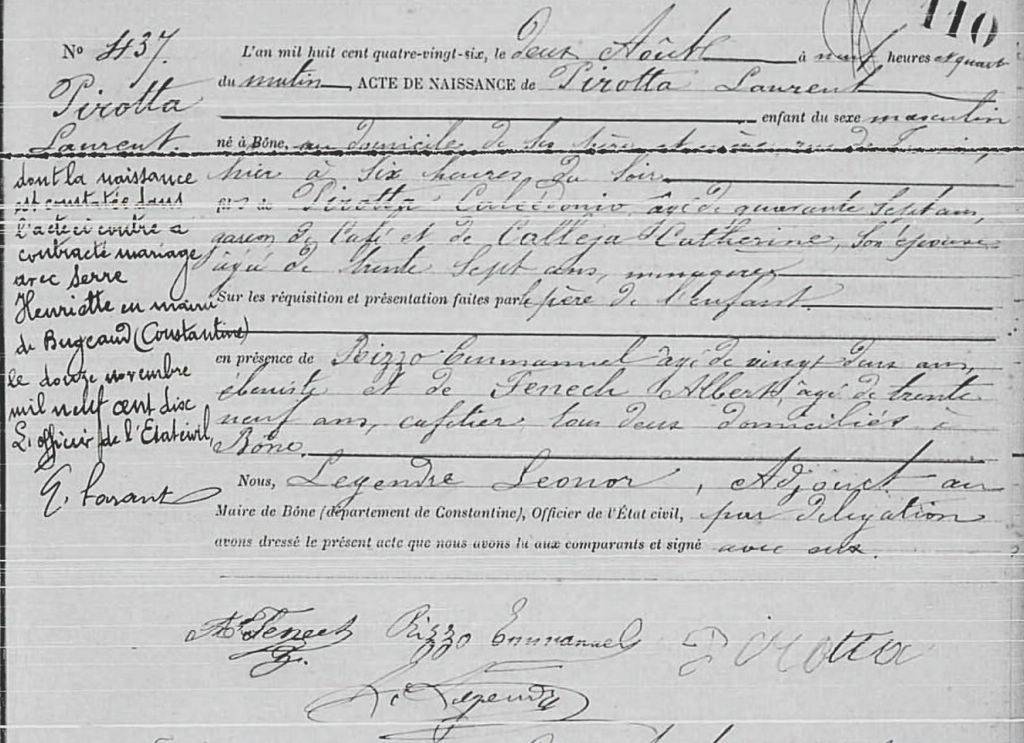 110
N° 437.
Pirotta
Laurent.
dont la naissance
est constatée dans
l'acte ci contre a
contracté mariage
avec Serre
Henriette en mairie
de Bugeaud (Constantine)
le douze novembre
mil neuf cent dix
L'officier de l'Etat civil,
L'an mil huit cent quatre-vingt-six, le deux Août à neuf heures et quart
du matin, ACTE DE NAISSANCE de Pirotta Laurent
enfant du sexe masculin
né à Bône, au domicile de ses père et mère, rue de
hier à six heures du soir
fils de Pirotta Calcedonio, âgé de quarante sept ans,
garçon de Café et de Calleja Catherine, son épouse
âgée de trente sept ans, ménagère
Sur les réquisition et présentation faites par le père de l'enfant
en présence de Rizzo Emmanuel âgé de vingt deux ans,
ébéniste et de Fenech Albert, âgé de trente
neuf ans, cafetier tous deux domiciliés à
Bône.
Nous, Legendre Leonor, Adjoint au
Maire de Bône (département de Constantine), Officier de l'État civil, par délégation
avons dressé le présent acte que nous avons lu aux comparants et signé avec eux.
Fenech Rizzo Emmanuel Pirotta
Legendre